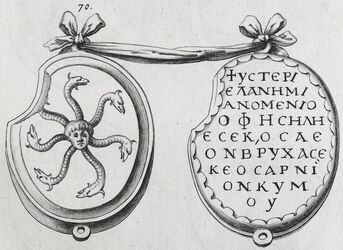 70.
ΨΥCΤΕΡΙ
ΕΛΑΝΗΜΙ
ΑΝΟΜΕΝΙΟ
ΟΦΗCΗΛΗ
ΕCΕΚ,ΟCΑΕ
ΟΝΒΡΥΧΑCΕ
ΚΕΟCΑΡΝΙ
ΟΝΚΥΜ
ΟΥ